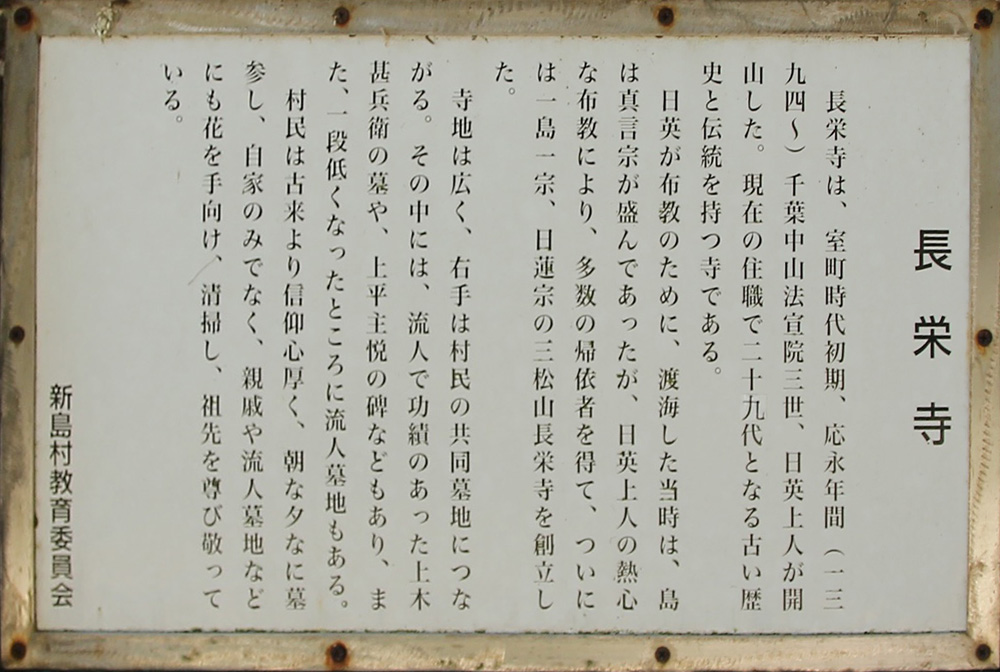 長栄寺
長栄寺は、室町時代初期、応永年間（一三
九四～）千葉中山法宣院三世、日英上人が開
山した。現在の住職で二十九代となる古い歴
史と伝統を持つ寺である。
日英が布教のために、渡海した当時は、島
は真言宗が盛んであったが、日英上人の熱心
な布教により、多数の帰依者を得て、ついに
は一島一宗、日蓮宗の三松山長栄寺を創立し
た。
寺地は広く、右手は村民の共同墓地につな
がる。その中には、流人で功績のあった上木
甚兵衛の墓や、上平主悦の碑などもあり、ま
た、一段低くなったところに流人墓地もある。
村民は古来より信仰心厚く、朝な夕なに墓
参し、自家のみでなく、親戚や流人墓地など
にも花を手向け、清掃し、祖先を尊び敬って
いる。
新島村教育委員会